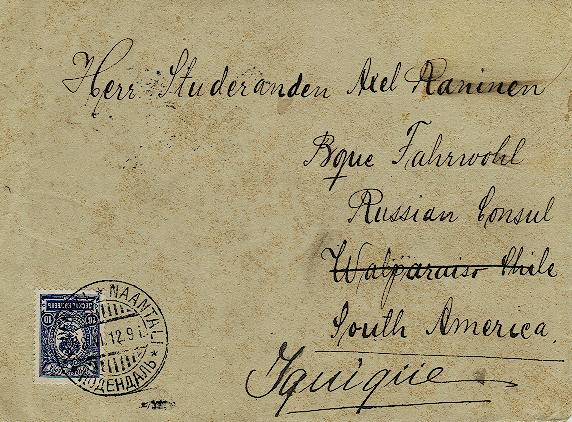 Herr Studeranden Axel Raninen
Bque Fahrwohl
Russian Consul
Walparaiso Chile
South America.
Iquique
NAANTALI
12.9
10